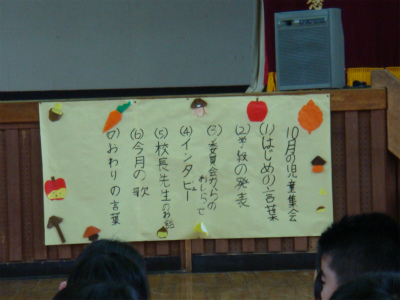 10月の児童集会
(1)はじめの言葉
(2)学級の発表
(3)委員会からの
おしらせ
(4)インタビー
(5)校長先生のお話
(6)今月の歌
(7)おわりの言葉